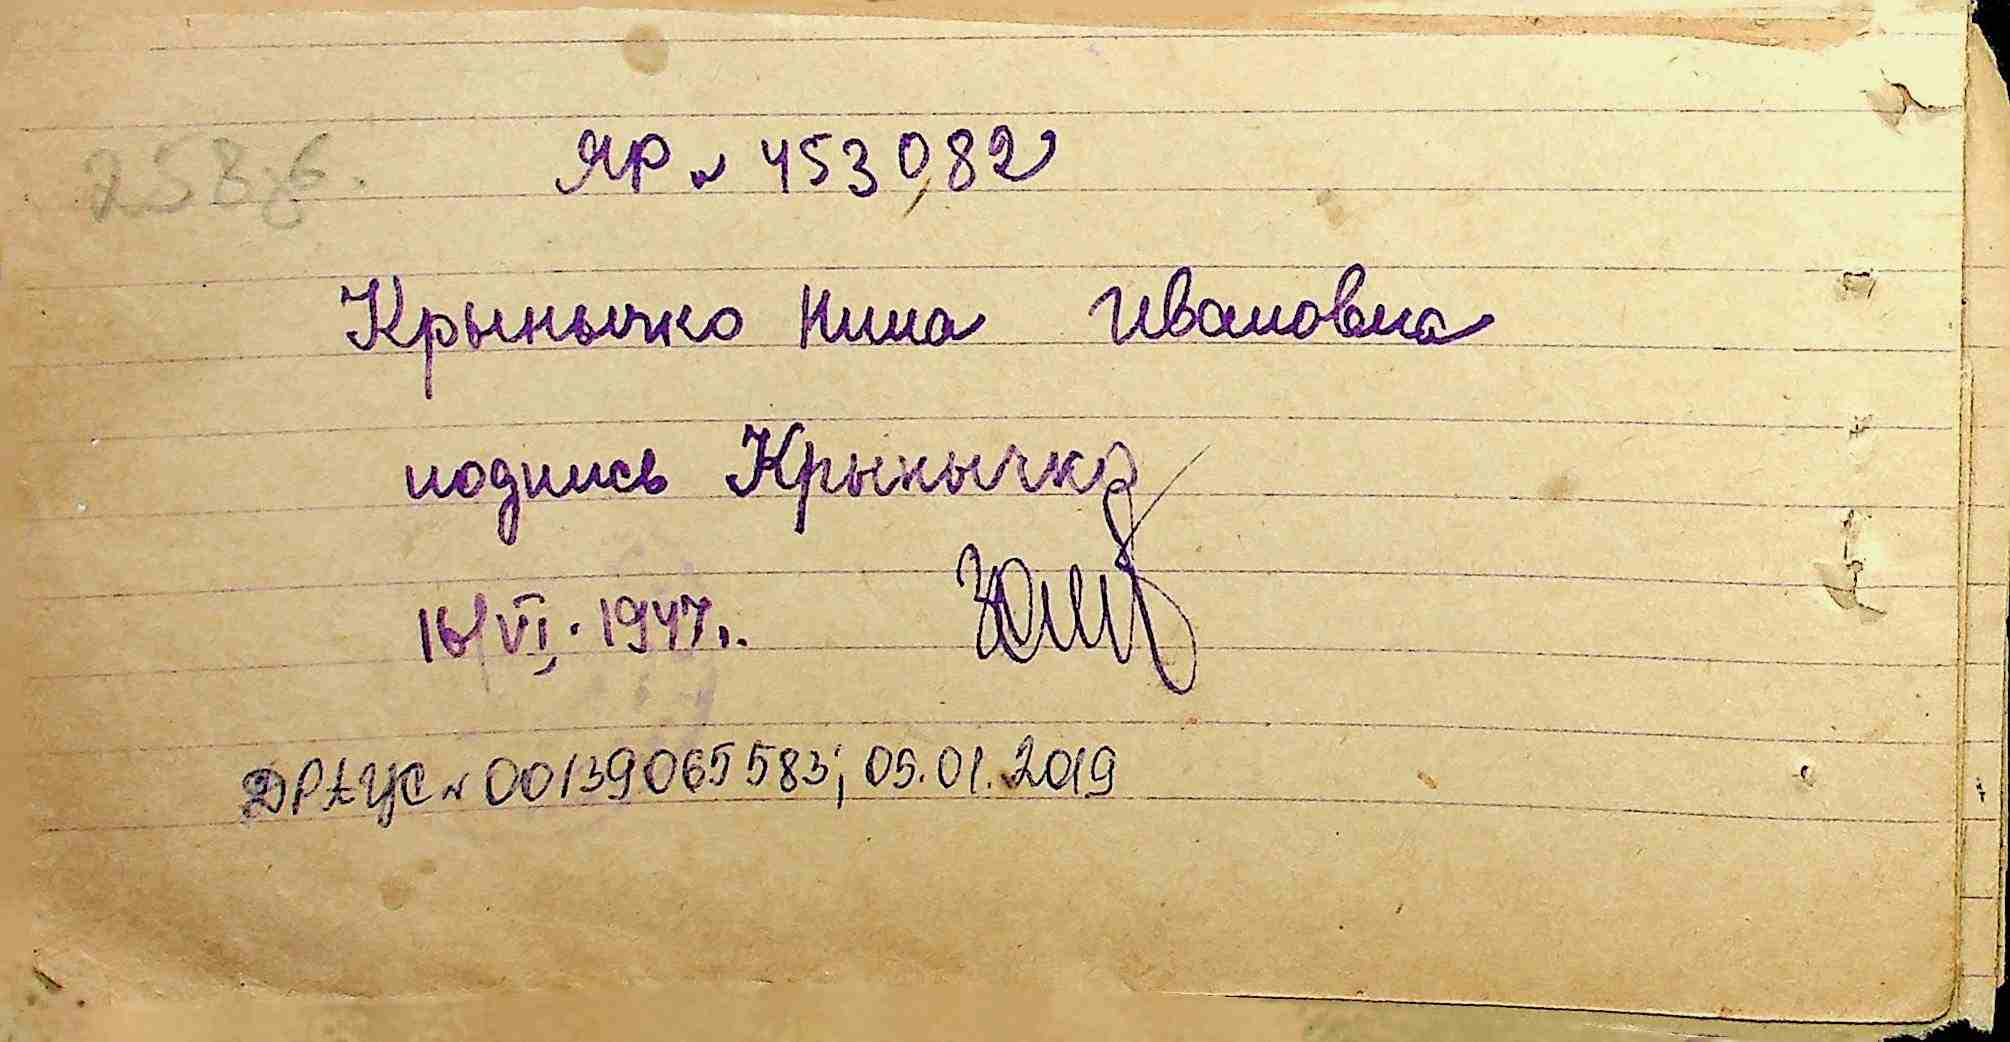 ЯР № 453082
Крынычко Нина Ивановна
подпись Крынычко
16/VI. 1947г.
ДРАЦС № 00139065583; 05.01.2019